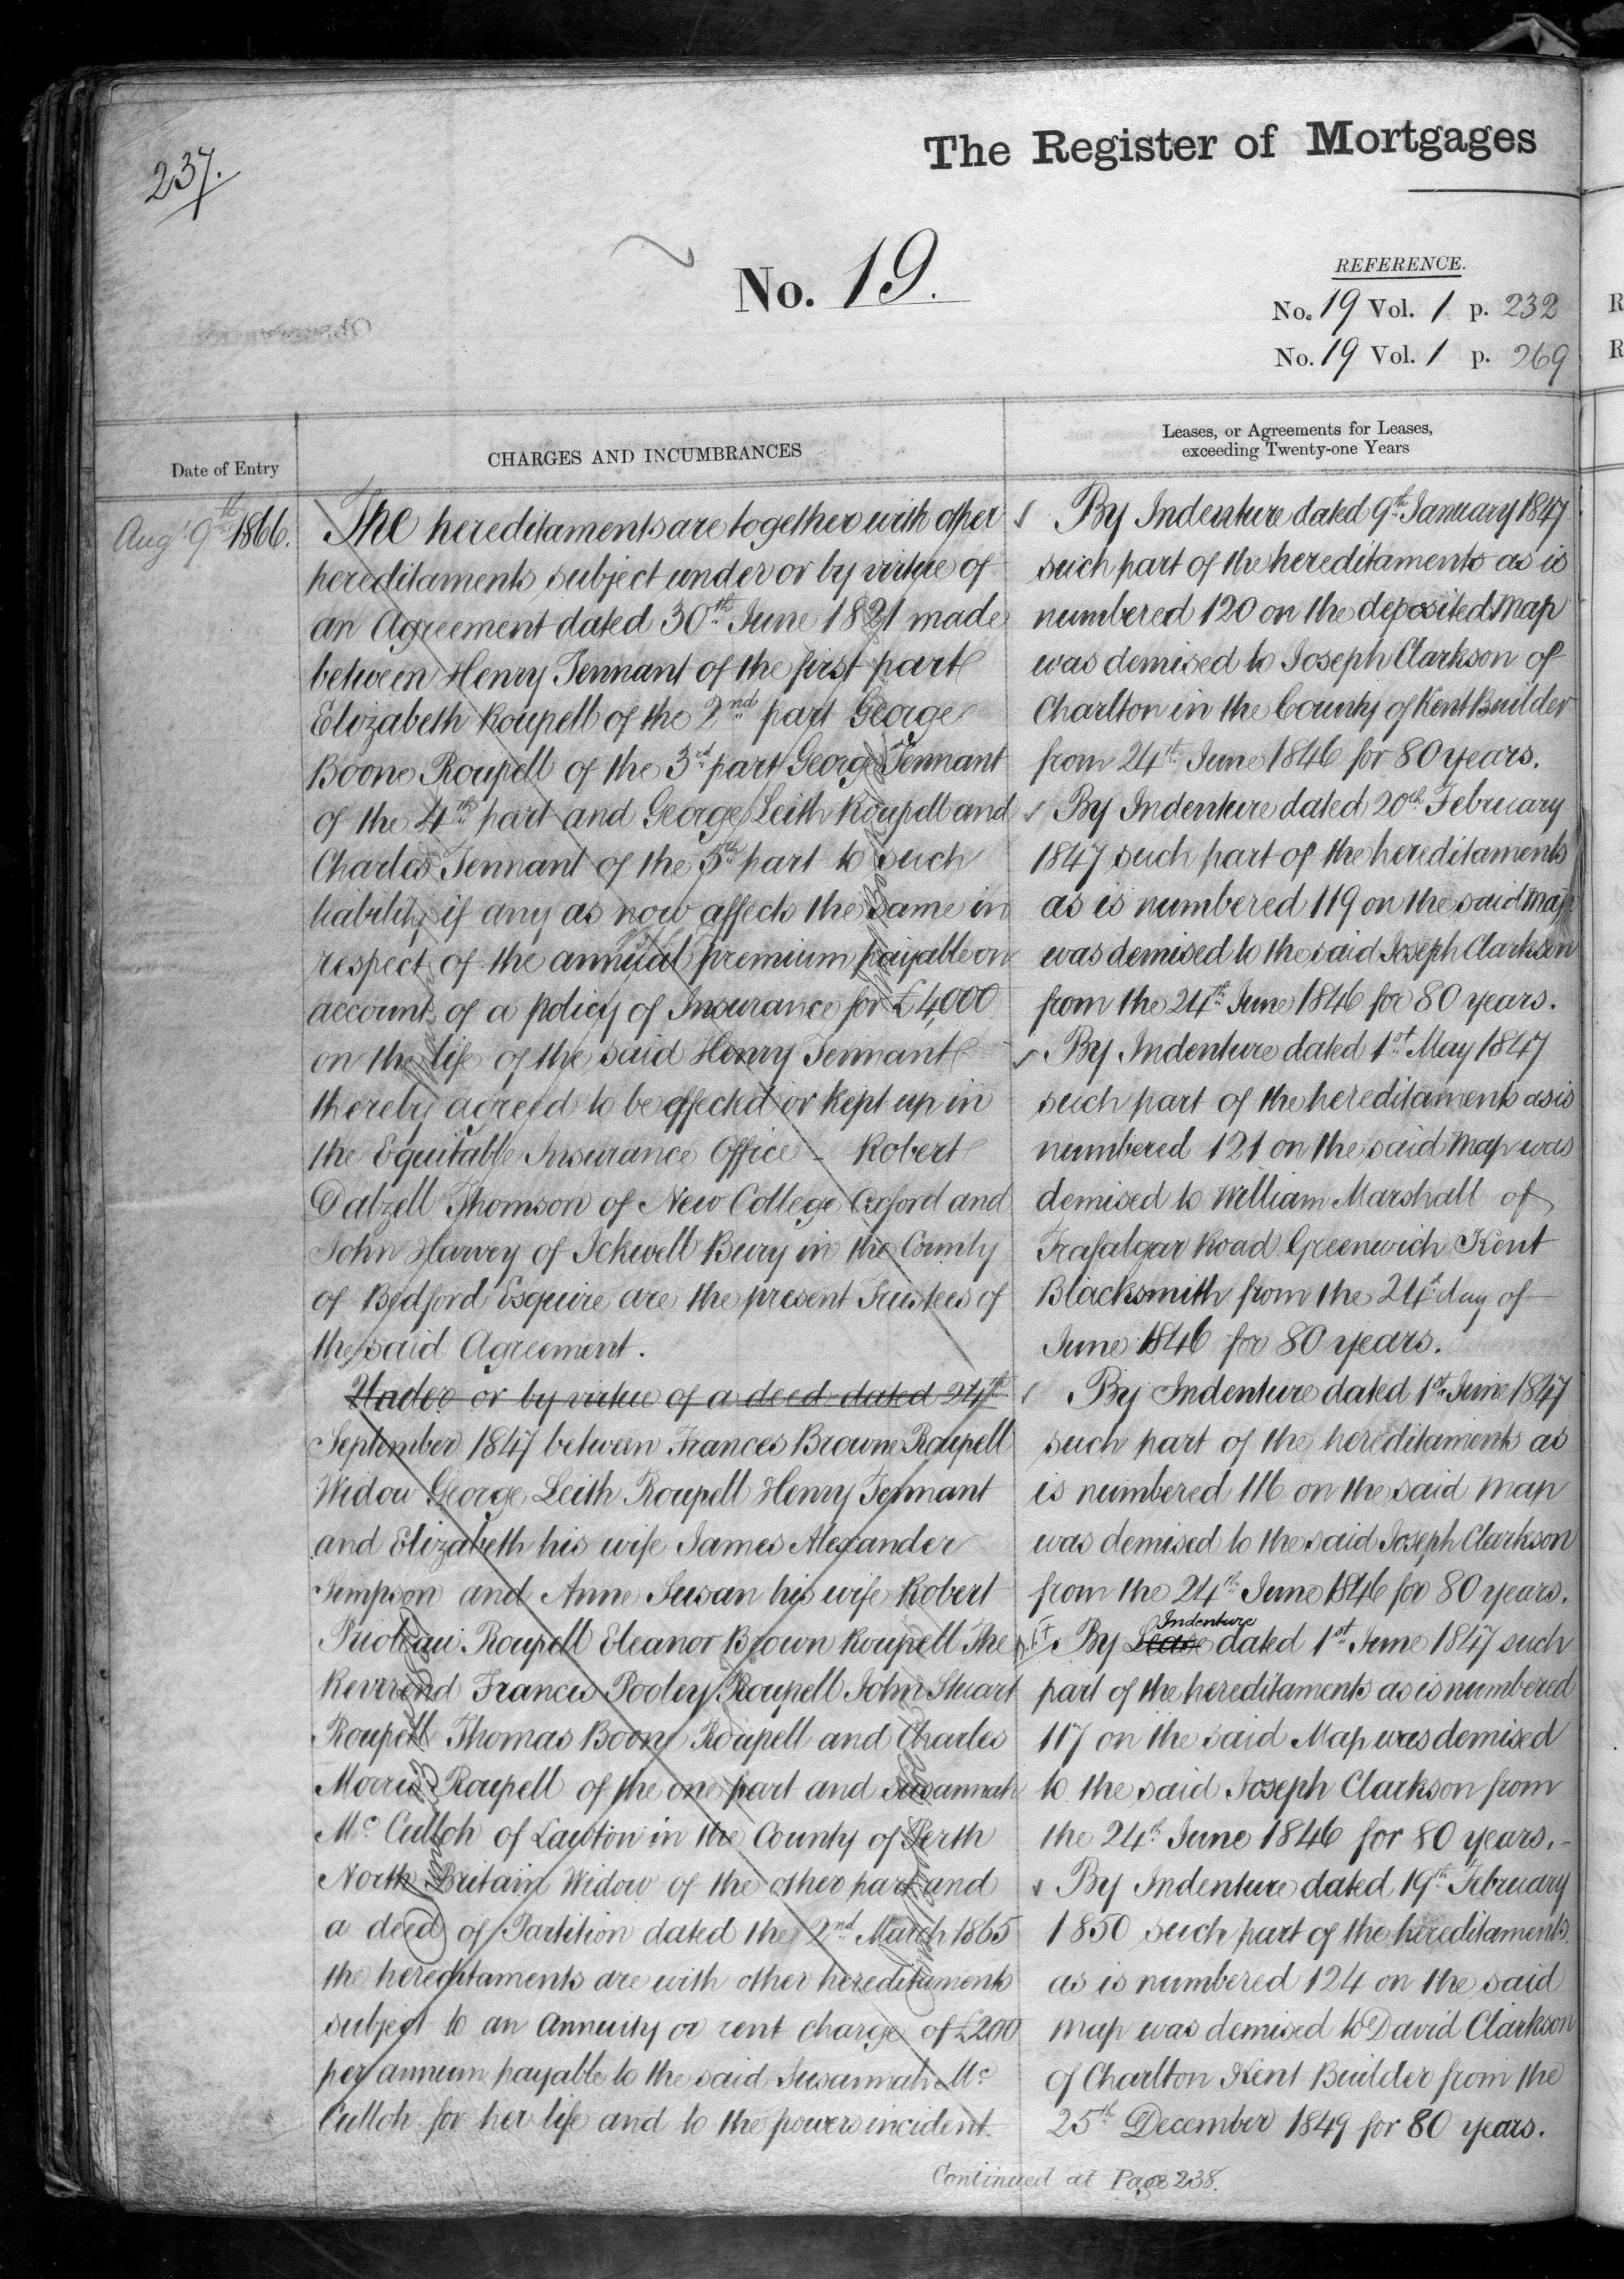 237.
The Register of Mortgages
No. 19.
REFERENCE.
No. 19 Vol. 1 p. 232
No. 19 Vol. 1 p. 269
Date of Entry
CHARGES AND INCUMBRANCES
Leases, or Agreements for Leases,
exceeding Twenty-one Years
Aug 9th 1866.
The hereditaments are together with other
hereditaments subject under or by virtue of
an Agreement dated 30th June 1821 made
between Henry Tennant of the first part
Elizabeth Roupell of the 2nd part George
Boone Roupell of the 3rd part George Tennant
of the 4th part and George Leith Roupell and
Charles Tennant of the 5th part to such
liability if any as now affects the same in
respect of the annual premium payable on
account of a policy of Insurance for £4,000
on the life of the said Henry Tennant
thereby agreed to be effected or kept up in
the Equitable Insurance Office - Robert
Dalzell Thomson of New College Oxford and
John Harvey of Ickwell Bury in the County
of Bedford Esquire are the present Trustees of
the said Agreement.
Under or by virtue of a deed dated 24th
September 1847 between Frances Browne Roupell
Widow George Leith Roupell Henry Tennant
and Elizabeth his wife James Alexander
Simpson and Anne Susan his wife Robert
Prioleau Roupell Eleanor Brown Roupell The
Reverend Francis Pooley Roupell John Stuart
Roupell Thomas Boone Roupell and Charles
Morris Roupell of the one part and Susannah
Mc Culloh of Lawton in the County of Perth
North Britain Widow of the other part and
a deed of Partition dated the 2nd March 1865
the hereditaments are with other hereditaments
subject to an Annuity or rent charge of £200
per annum payable to the said Susannah Mc
Culloh for her life and to the powers incident
By Indenture dated 9th January 1847
such part of the hereditaments as is
numbered 120 on the deposited Map
was demised to Joseph Clarkson of
Charlton in the County of Kent Builder
from 24th June 1846 for 80 years.
By Indenture dated 20th February
1847 such part of the hereditaments
as is numbered 119 on the said Map
was demised to the said Joseph Clarkson
from the 24th June 1846 for 80 years.
By Indenture dated 1st May 1847
such part of the hereditaments as is
numbered 121 on the said Map was
demised to William Marshall of
Trafalgar Road Greenwich Kent
Blacksmith from the 24th day of
June 1846 for 80 years.
By Indenture dated 1st June 1847
such part of the hereditaments as
is numbered 116 on the said Map
was demised to the said Joseph Clarkson
from the 24th June 1846 for 80 years.
By Lease Indenture dated 1st June 1847 such
part of the hereditaments as is numbered
117 on the said Map was demised
to the said Joseph Clarkson from
the 24th June 1846 for 80 years. -
By Indenture dated 19th February
1850 such part of the hereditaments
as is numbered 124 on the said
Map was demised to David Clarkson
of Charlton Kent Builder from the
25th December 1849 for 80 years.
Continued at Page 238.